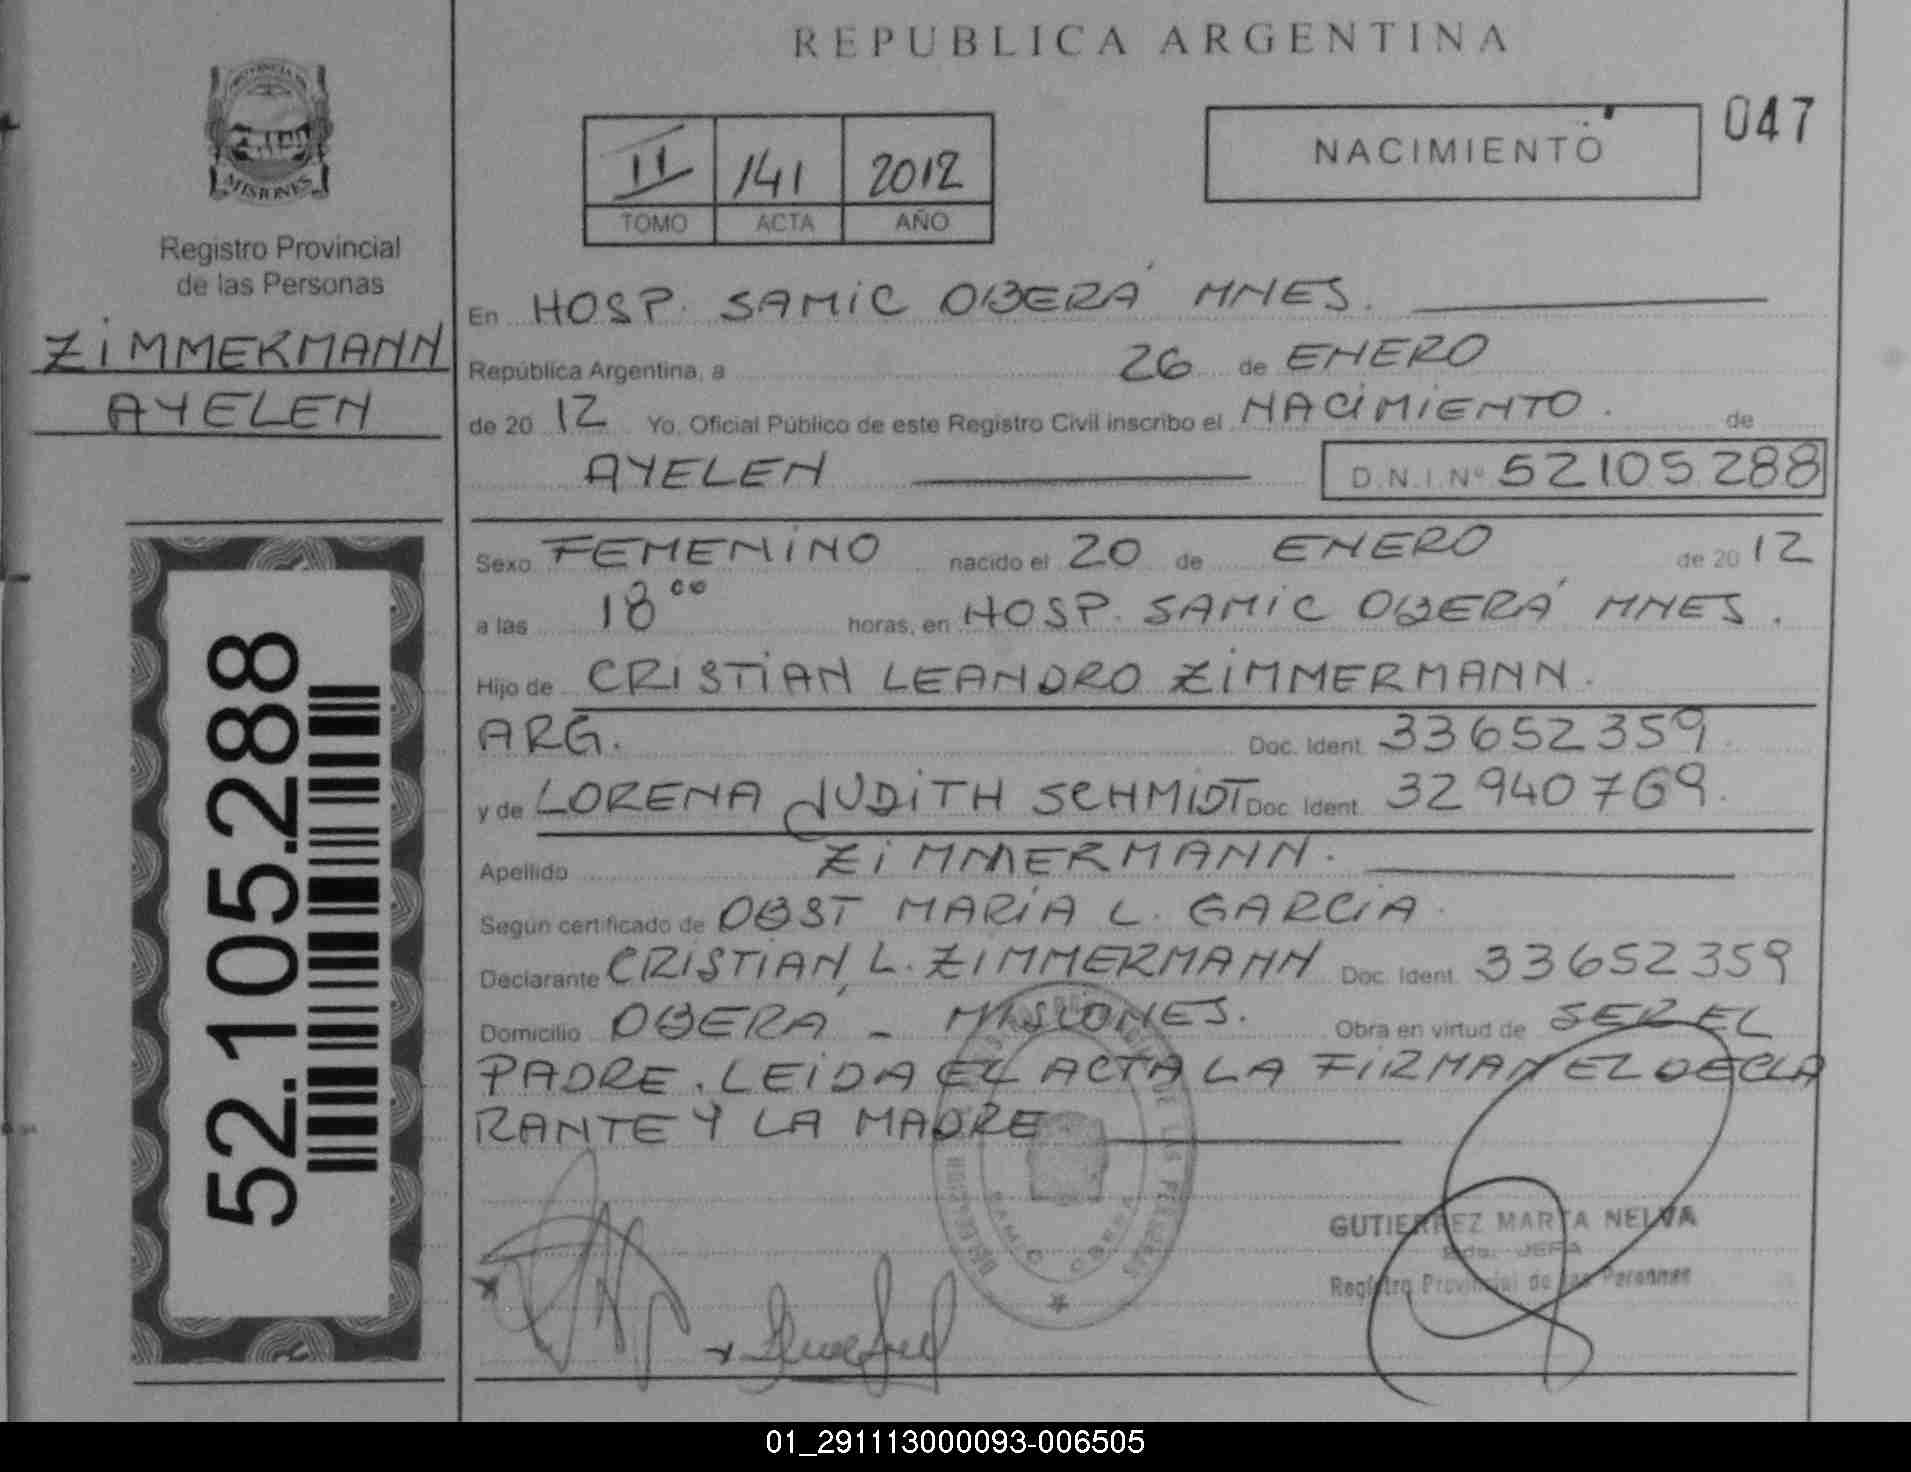 REPUBLICA ARGENTINA
PROVINCIA DE
MISIONES
Registro Provincial
de las Personas
ZIMMERMANN
AYELEN
52.105.288
II 141 2012
TOMO ACTA AÑO
NACIMIENTO
047
En HOSP. SAMIC OBERÁ MNES.
República Argentina, a 26 de ENERO
de 20 12 Yo, Oficial Público de este Registro Civil inscribo el NACIMIENTO. de
AYELEN D.N.I. Nº 52105288
Sexo FEMENINO nacido el 20 de ENERO de 20 12
a las 18 00 horas, en HOSP. SAMIC OBERÁ MNES.
Hijo de CRISTIAN LEANDRO ZIMMERMANN.
ARG. Doc. Ident. 33652359.
y de LORENA JUDITH SCHMIDT Doc. Ident. 32940769.
Apellido ZIMMERMANN.
Según certificado de OBST MARIA L. GARCIA.
Declarante CRISTIAN, L. ZIMMERMANN Doc. Ident. 33652359
Domicilio OBERA - MISIONES. Obra en virtud de SER EL
PADRE. LEIDA EL ACTA LA FIRMAN EL DECLA
RANTE Y LA MADRE
DE LAS PERSONAS
SAMIC OBERA
GUTIERREZ MARTA NELVA
JEFA
Registro Provincial de las Personas
01_291113000093-006505